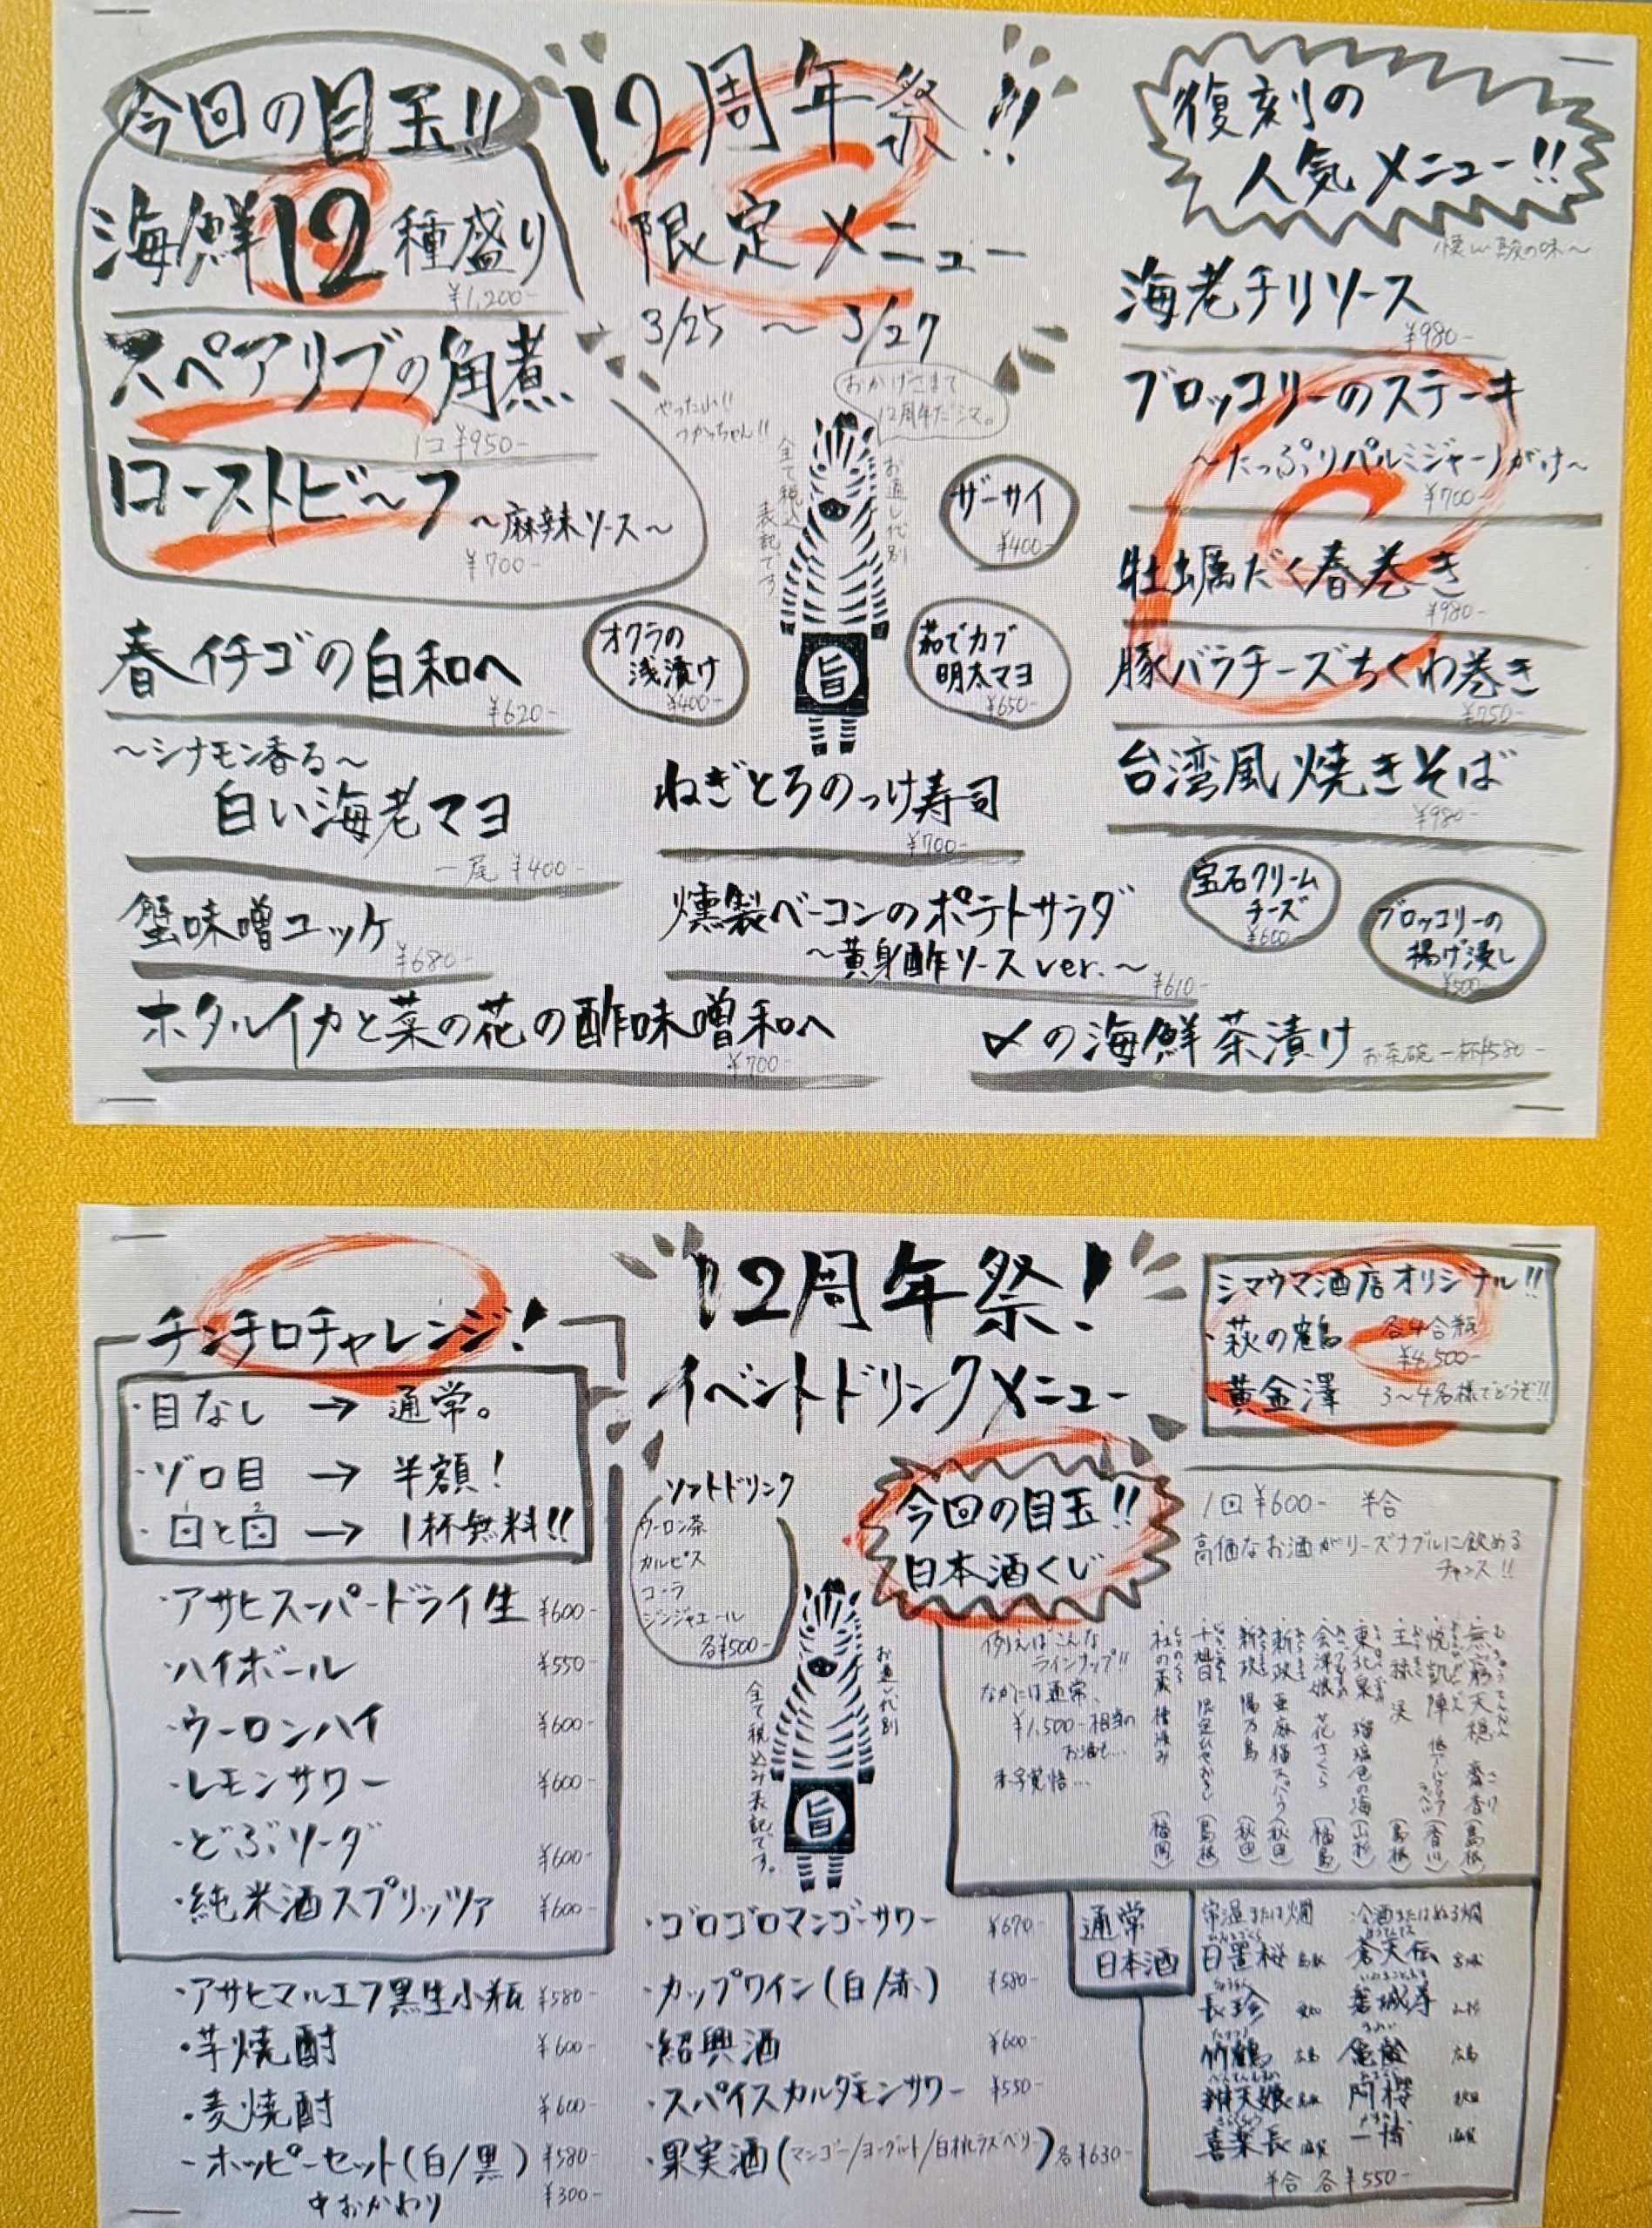 今回の目玉!!
海鮮12種盛り
¥1,200-
スペアリブの角煮
1コ ¥950-
ローストビーフ
〜麻辣ソース〜
¥700-
12周年祭!!
限定メニュー
3/25 〜 3/27
復刻の
人気メニュー!!
海老チリソース
¥980-
ブロッコリーのステーキ
〜たっぷりパルミジャーノがけ〜
¥700-
牡蠣だく春巻き
¥980-
豚バラチーズちくわ巻き
¥750-
台湾風焼きそば
¥980-
やったね!!
つかっちゃん!!
おかげさまで
12周年だシマ。
お通し代別
全て税込
表記です
ザーサイ
¥400-
オクラの
浅漬け
¥400-
茹でカブ
明太マヨ
¥650-
春イチゴの白和へ
¥620-
〜シナモン香る〜
白い海老マヨ
一尾 ¥400-
蟹味噌ユッケ
¥680-
ホタルイカと菜の花の酢味噌和へ
¥700-
ねぎとろのっけ寿司
¥700-
燻製ベーコンのポテトサラダ
〜黄身酢ソースver.〜
¥610-
宝石クリーム
チーズ
¥600-
ブロッコリーの
揚げ浸し
¥500-
〆の海鮮茶漬け
お茶碗一杯¥580-
旨
チンチロチャレンジ!
・目なし → 通常。
・ゾロ目 → 半額!
・⚀と⚁ → 1杯無料!!
・アサヒスーパードライ生 ¥600-
・ハイボール ¥550-
・ウーロンハイ ¥600-
・レモンサワー ¥600-
・どぶソーダ ¥600-
・純米酒スプリッツァ ¥600-
・アサヒマルエフ黒生小瓶 ¥580-
・芋焼酎 ¥600-
・麦焼酎 ¥600-
・ホッピーセット(白/黒) ¥580-
中おかわり ¥300-
12周年祭!
イベントドリンクメニュー
ソフトドリンク
ウーロン茶
カルピス
コーラ
ジンジャエール
各¥500-
お通し代別
全て税込み表記です。
旨
・ゴロゴロマンゴーサワー ¥670-
・カップワイン(白/赤) ¥580-
・紹興酒 ¥600-
・スパイスカルダモンサワー ¥550-
・果実酒(マンゴー/ヨーグルト/白桃ラズベリー) 各¥630-
シマウマ酒店オリジナル!!
・萩の鶴
・黄金澤
各4合瓶
¥4,500-
3〜4名様でどうぞ!!
今回の目玉!!
日本酒くじ
1回 ¥600- 半合
高価なお酒がリーズナブルに飲める
チャンス!!
例えばこんな
ラインナップ!!
なかには通常、
¥1,500-相当の
お酒も…
赤字覚悟…
無窮天穏 齋香 (島根)
悦凱陣 (香川)
王祿 渓 (島根)
東北泉 瑠璃色の海 (山形)
会津娘 花さくら (福島)
新政 亜麻猫スパーク (秋田)
新政 陽乃鳥 (秋田)
十旭日 (島根)
杜の蔵 (福岡)
通常
日本酒
常温または燗
日置桜 鳥取
長珍 愛知
竹鶴 広島
辨天娘 鳥取
喜楽長 滋賀
冷酒またはぬる燗
蒼天伝 宮城
磐城壽 山形
亀齢 広島
阿櫻 秋田
一博 滋賀
半合 各¥550-